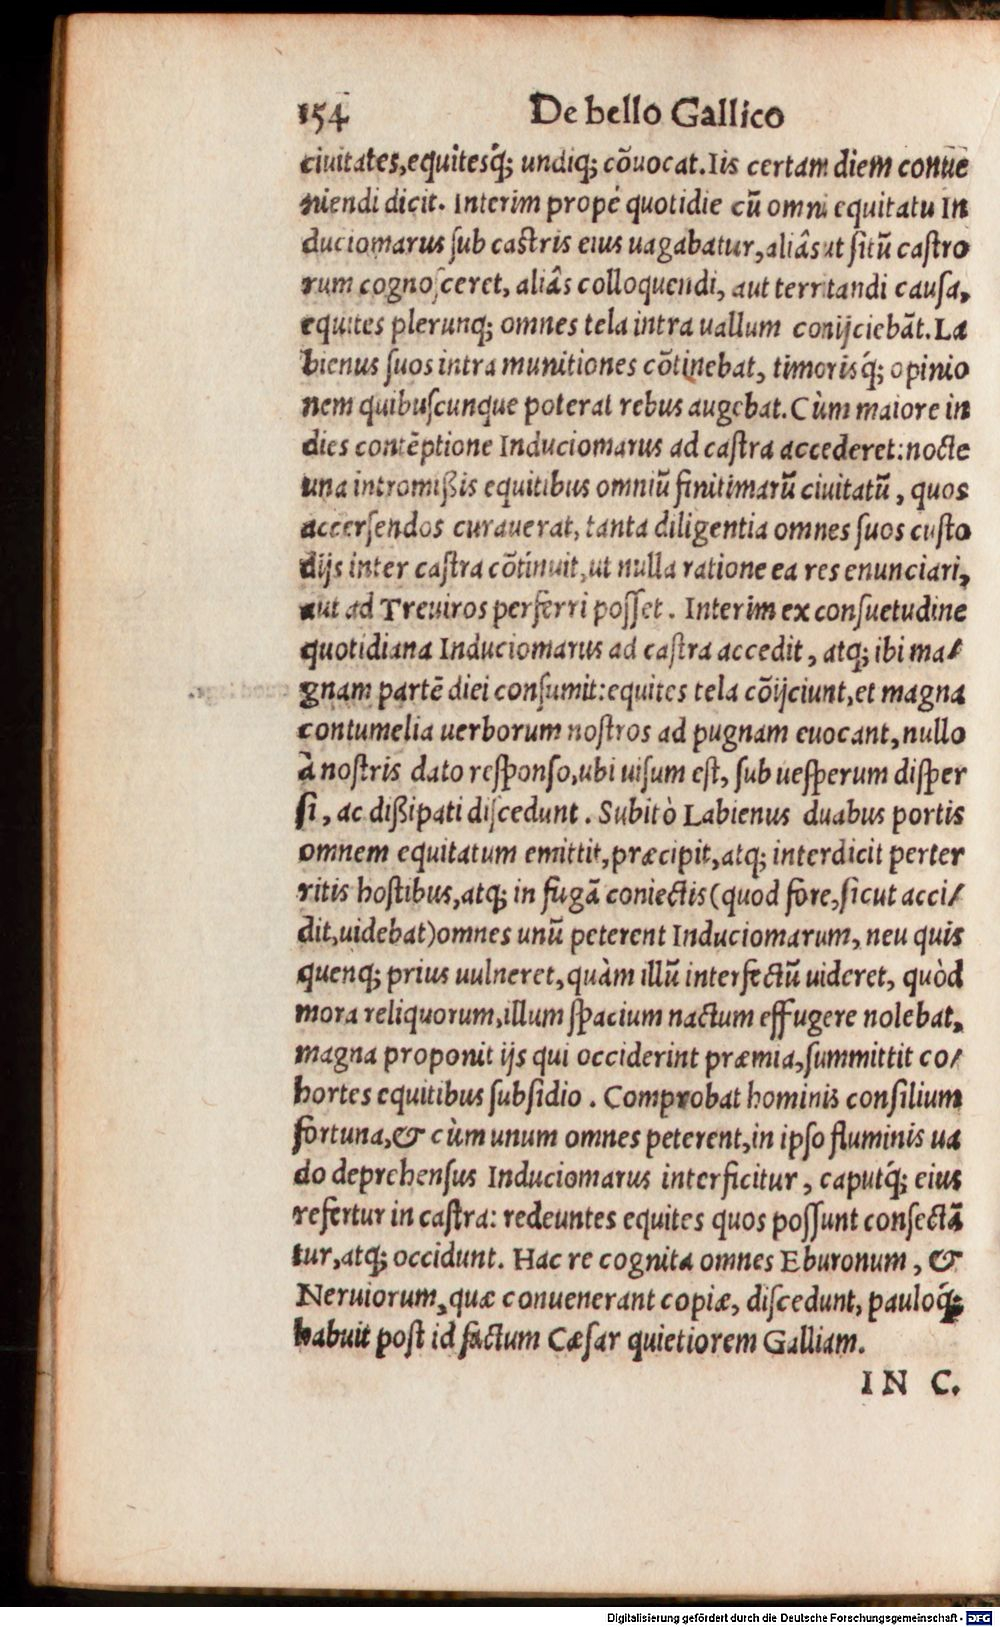 154 De bello Gallico
ciuitates,equitesq́; undiq; cõuocat.Iis certam diem conuẽ
niendi dicit. Interim propè quotidie cũ omni equitatu In
duciomarus ſub caſtris eius uagabatur,aliâs ut ſitũ caſtro
rum cognoſceret, aliâs colloquendi, aut territandi cauſa,
equites plerunq; omnes tela intra uallum conijciebãt.La
bienus ſuos intra munitiones cõtinebat, timorisq́; opinio
nem quibuſcunque poterat rebus augebat.Cùm maiore in
dies contẽptione Induciomarus ad caſtra accederet:nocte
una intromißis equitibus omniũ finitimarũ ciuitatũ, quos
accerſendos curauerat, tanta diligentia omnes ſuos cuſto
dijs inter caſtra cõtinuit,ut nulla ratione ea res enunciari,
aut ad Treuiros perferri poſſet. Interim ex conſuetudine
quotidiana Induciomarus ad caſtra accedit, atq; ibi ma⸗
gnam partẽ diei conſumit:equites tela cõijciunt,et magna
contumelia uerborum noſtros ad pugnam euocant,nullo
à noſtris dato reſponſo,ubi uiſum eſt, ſub ueſperum diſper
ſi, ac dißipati diſcedunt. Subitò Labienus duabus portis
omnem equitatum emittit,præcipit,atq; interdicit perter
ritis hoſtibus,atq; in fugã coniectis(quod fore,ſicut acci⸗
dit,uidebat)omnes unũ peterent Induciomarum, neu quis
quenq; prius uulneret,quàm illũ interfectũ uideret, quòd
mora reliquorum,illum ſpacium nactum effugere nolebat,
magna proponit ijs qui occiderint præmia,ſummittit co⸗
hortes equitibus ſubſidio. Comprobat hominis conſilium
fortuna,& cùm unum omnes peterent,in ipſo fluminis ua
do deprehenſus Induciomarus interficitur, caputq́; eius
refertur in caſtra: redeuntes equites quos poſſunt conſectã
tur,atq; occidunt. Hac re cognita omnes Eburonum, &
Neruiorum,quæ conuenerant copiæ, diſcedunt, pauloq́;
habuit poſt id factum Cæſar quietiorem Galliam.
IN C.
Digitalisierung gefördert durch die Deutsche Forschungsgemeinschaft - DFG